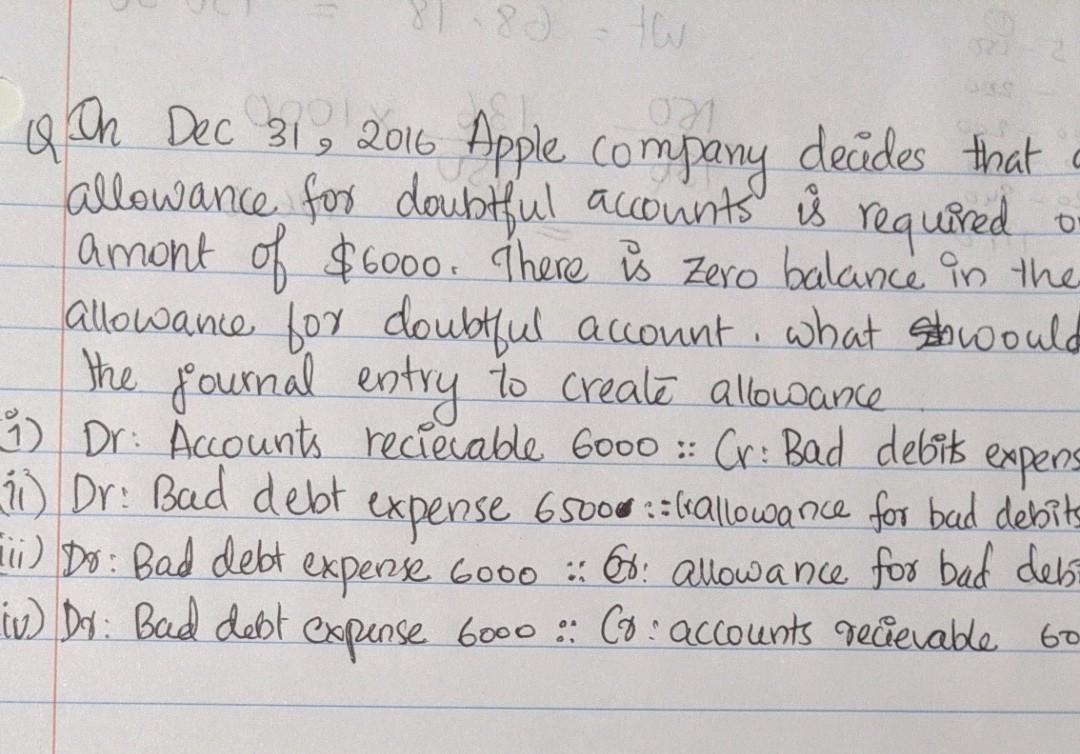 Q On Dec 31, 2016 Apple company decides that
allowance for doubtful accounts is required
amont of $6000. There is zero balance in the
allowance for doubtful account. what would
the journal entry to create allowance
i) Dr: Accounts recievable 6000 :: Cr: Bad debits expens
ii) Dr: Bad debt expense 6500 :: Cr allowance for bad debits
iii) Dr: Bad debt expense 6000 :: Cr: allowance for bad debi
iv) Dr: Bad debt expense 6000 :: Cr: accounts recievable 60